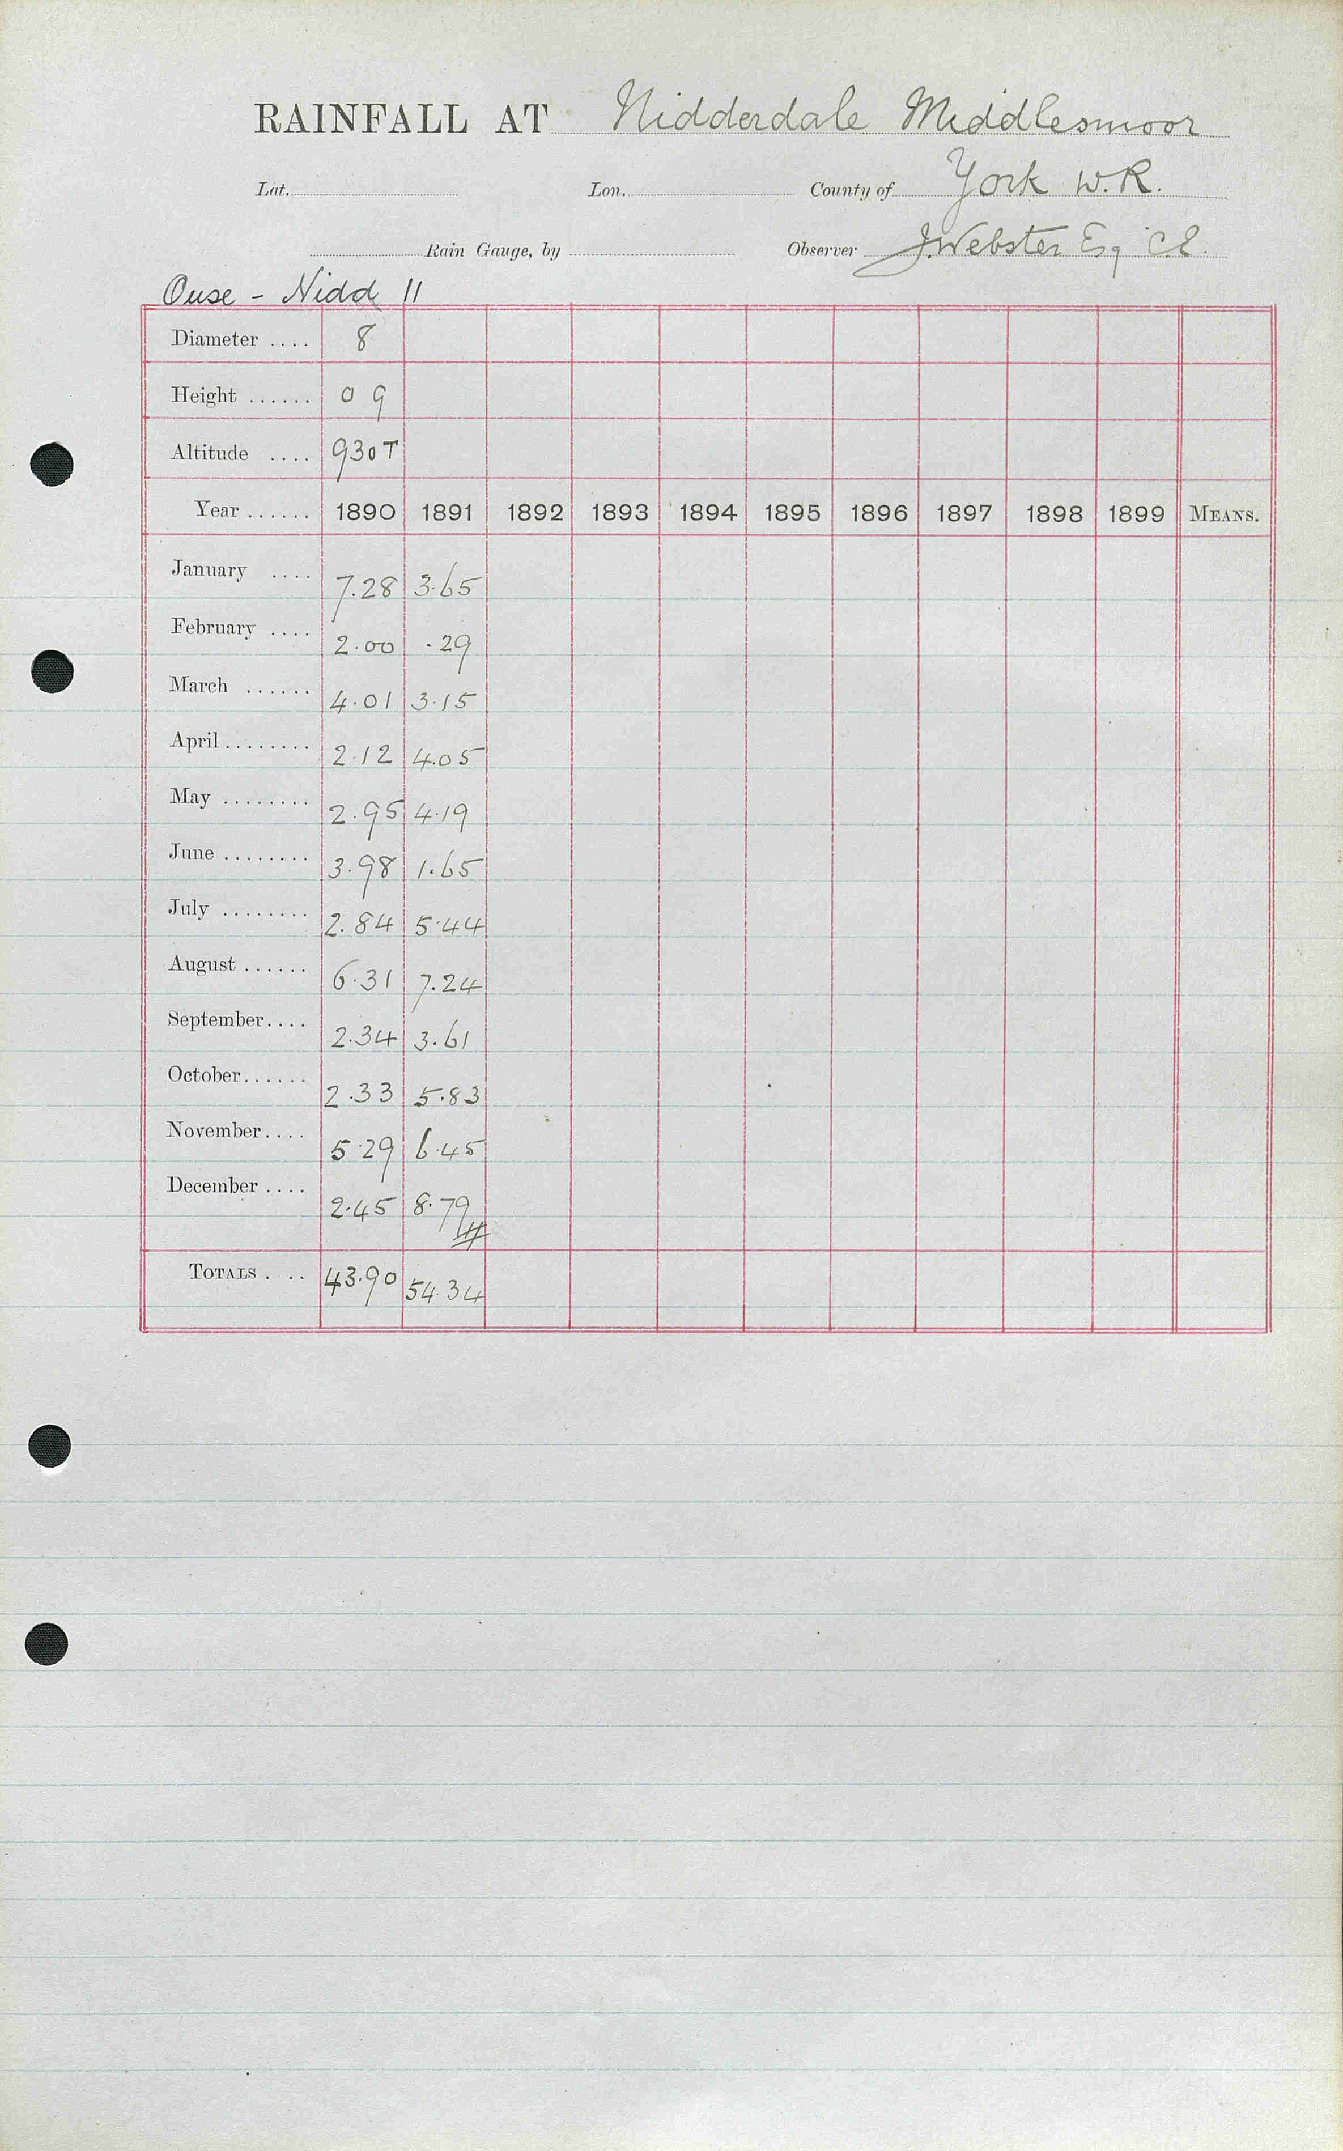 RAINFALL AT Nidderdale Middlesmoor
Lat. Lon. County of York W.R.
Rain Gauge, by Observer J. Webster Esq C.E.
Ouse - Nidd 11
Diameter .... 8
Height ...... 0 9
Altitude .... 930 T
Year ...... 1890 1891 1892 1893 1894 1895 1896 1897 1898 1899 MEANS.
January .... 7.28 3.65
February .... 2.00 .29
March ...... 4.01 3.15
April ........ 2.12 4.05
May ........ 2.95 4.19
June ........ 3.98 1.65
July ........ 2.84 5.44
August ...... 6.31 7.24
September .... 2.34 3.61
October ...... 2.33 5.83
November .... 5.29 6.45
December .... 2.45 8.79
TOTALS . .. 43.90 54.34